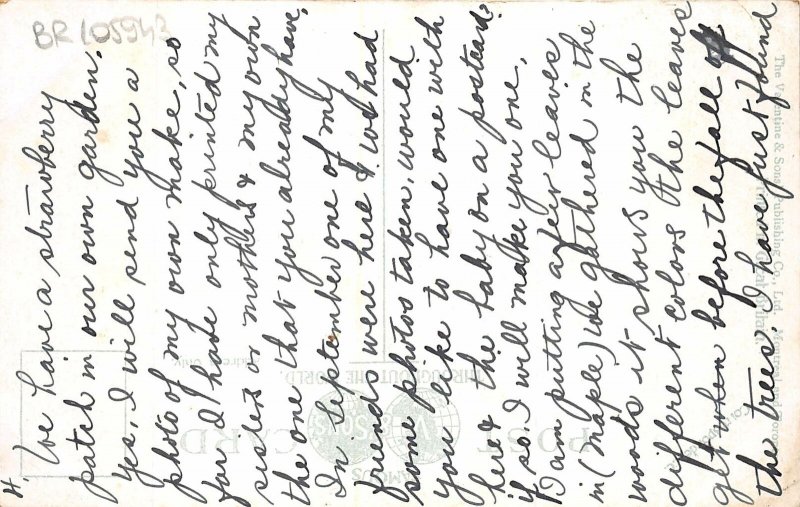 BR 105943
4.
We have a strawberry
patch in our own garden.
Yes, I will send you a
photo of my own make, so
far I have only printed my
sisters & mothers & my own
the one that you already have,
In September one of my
friends were here & we had
some photos taken, would
you like to have one with
here & the baby on a postcard?
if so. I will make you one.
I am putting a few leaves
in (maple) we gathered in the
woods it shows you the
different colors of the leaves
get when before the fall off
the trees. I have just found
The Valentine & Sons Publishing Co., Ltd.
POST CARD
FAMOUS
THROUGHOUT THE WORLD.
Address Only